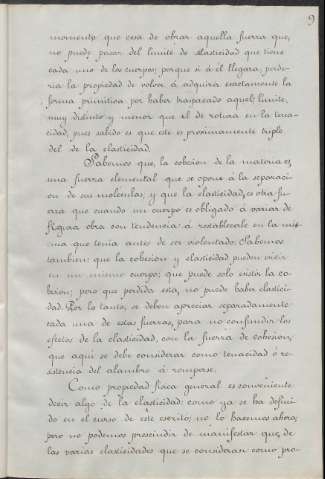 9
momento que cesa de obrar aquella fuerza que,
no puede pasar del limite de elasticidad que tiene
cada uno de los cuerpos; porque si á él llegara, perde-
ria la propiedad de volver á adquirir exactamente la
forma primitiva por haber traspasado aquel limite,
muy distinto y menor que el de rotura en la tena-
cidad, pues sabido es que este es proximamente triple
del de la elasticidad.
Sabemos que, la cohesion de la materia es
una fuerza elemental que se opone á la separacion
de sus moleculas, y que la elasticidad, es otra fu-
erza que cuando un cuerpo es obligado á variar de
figura obra con tendencia á restablecerle en la mis-
ma que tenia antes de ser violentado. Sabemos
tambien: que la cohesion y elasticidad pueden existir
en un mismo cuerpo; que puede solo existir la co-
hesion; pero que perdida esta, no puede haber elastici-
dad. Por lo tanto, se deben apreciar separadamente
cada una de estas fuerzas, para no confundir los
efectos de la elasticidad, con la fuerza de cohesion,
que aqui se debe considerar como tenacidad ó re-
sistencia del alambre á romperse.
Como propiedad fisica general es conveniente
decir algo de la elasticidad: como ya se ha defini-
do en el curso de este escrito; no lo hacemos ahora;
pero no podemos prescindir de manifestar que, de
las varias elasticidades que se consideran como pro-